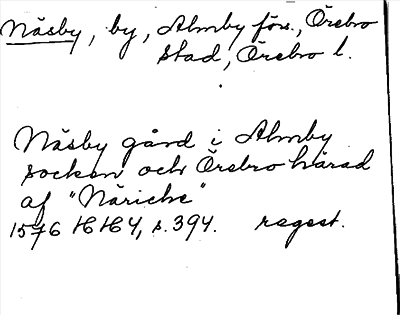 Näsby, by, Almby förs., Örebro
stad, Örebro l.
Näsby gård i Almby
socken och Örebro härad
af "Näriche"
1576 HH4, s. 394. regest.